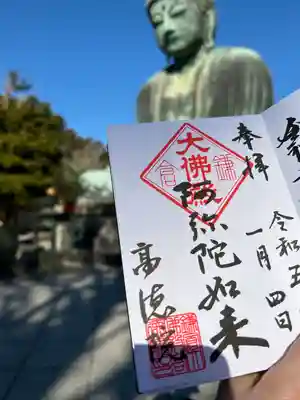 奉拝
令和五
一月四日
大佛殿
阿弥陀如来
高徳院